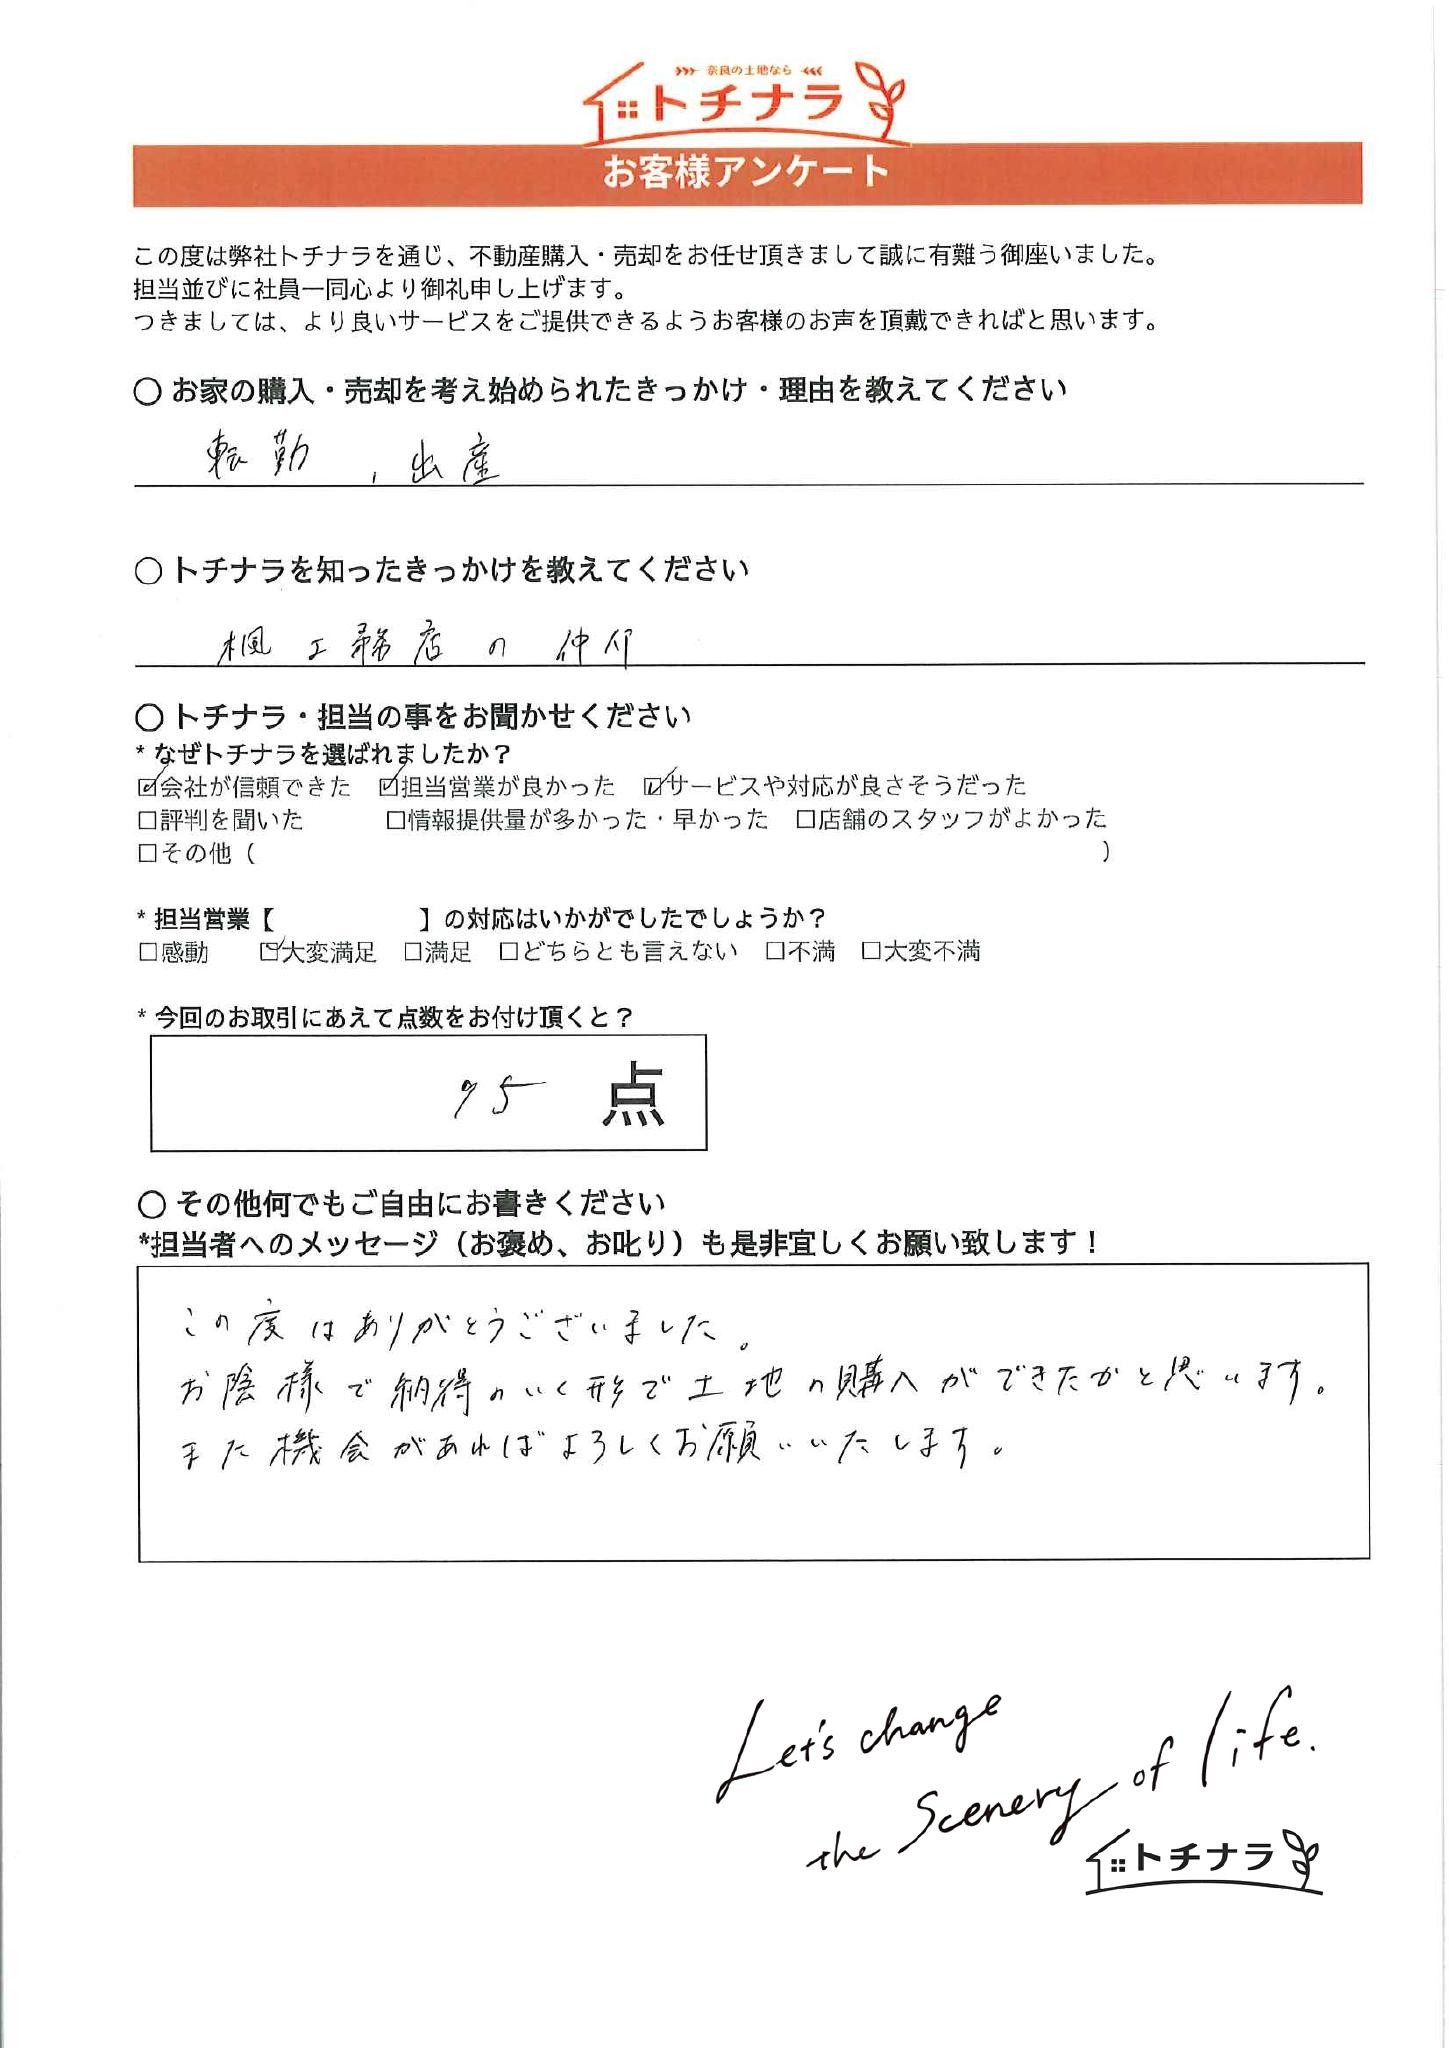 奈良の土地なら
トチナラ
お客様アンケート
この度は弊社トチナラを通じ、不動産購入・売却をお任せ頂きまして誠に有難う御座いました。
担当並びに社員一同心より御礼申し上げます。
つきましては、より良いサービスをご提供できるようお客様のお声を頂戴できればと思います。
○ お家の購入・売却を考え始められたきっかけ・理由を教えてください
転勤、出産
○ トチナラを知ったきっかけを教えてください
楓工務店の仲介
○ トチナラ・担当の事をお聞かせください
* なぜトチナラを選ばれましたか？
☑会社が信頼できた ☑担当営業が良かった ☑サービスや対応が良さそうだった
□評判を聞いた □情報提供量が多かった・早かった □店舗のスタッフがよかった
□その他（ ）
* 担当営業【 】の対応はいかがでしたでしょうか？
□感動 ☑大変満足 □満足 □どちらとも言えない □不満 □大変不満
* 今回のお取引にあえて点数をお付け頂くと？
95 点
○ その他何でもご自由にお書きください
*担当者へのメッセージ（お褒め、お叱り）も是非宜しくお願い致します！
この度はありがとうございました。
お陰様で納得のいく形で土地の購入ができたかと思います。
また機会があればよろしくお願いいたします。
Let's change
the Scenery of life.
トチナラ